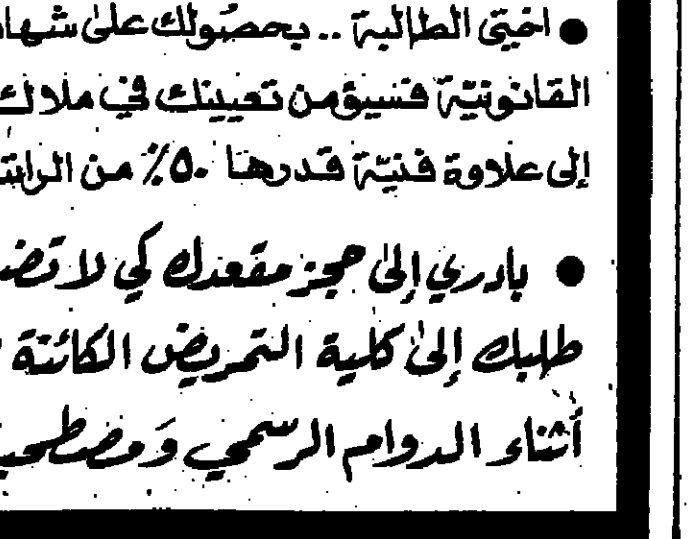 ● اختي الطالبة .. بحصولك على شها
القانونية فسيؤمن تعيينك في ملاك
إلى علاوة فنية قدرها ٥٠٪ من الرات
● بادري إلى حجز مقعدك كي لا تضـ
طلبك إلى كلية التمريض الكائنة
أثناء الدوام الرسمي ومصطحبـ